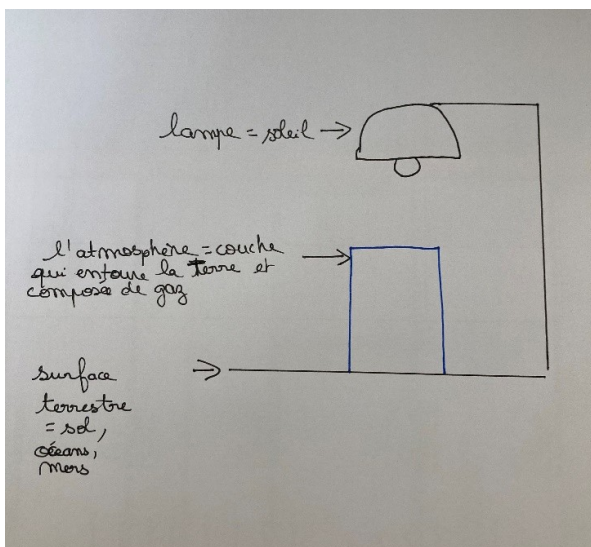 lampe = soleil →
l'atmosphère = couche →
qui entoure la Terre et
composée de gaz
surface →
terrestre
= sol,
océans,
mers